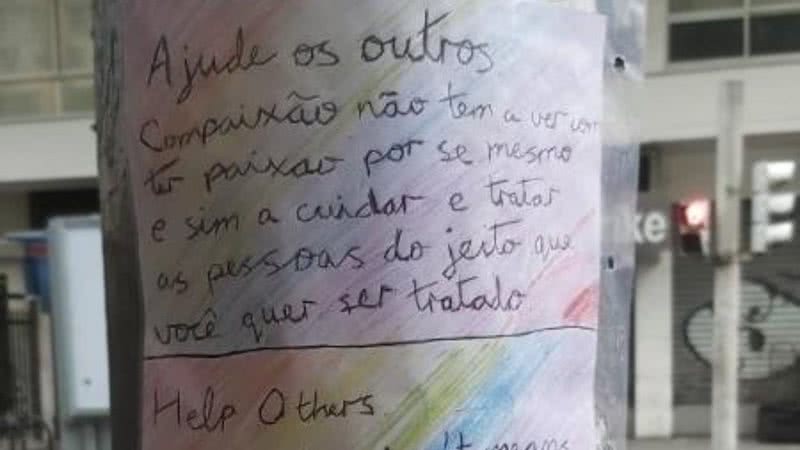 Ajude os outros
Compaixão não tem a ver com
ter paixao por se mesmo
e sim a cuidar e tratar
as pessoas do jeito que
você quer ser tratado
Help Others
It means
ke